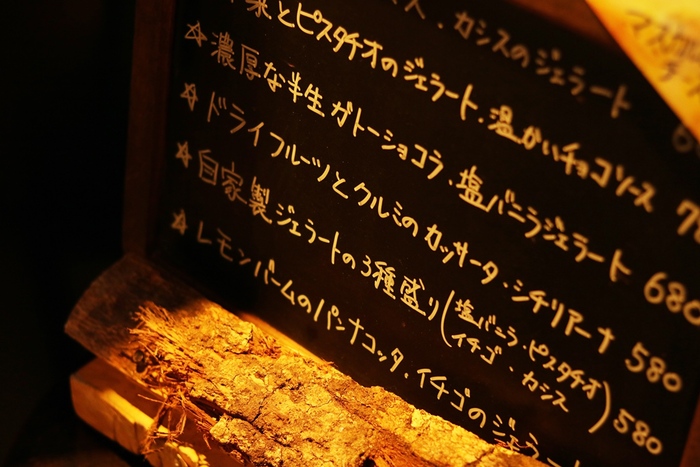 カシスのジェラート
とピスタチオのジェラート、温かいチョコソース
☆濃厚な半生ガトーショコラ、塩バニラジェラート 680
☆ドライフルーツとクルミのカッサータ・シチリアーナ 580
☆自家製ジェラートの3種盛り(塩バニラ・ピスタチオ
イチゴ・カシス)580
☆レモンバームのパンナコッタ、イチゴのジェラート